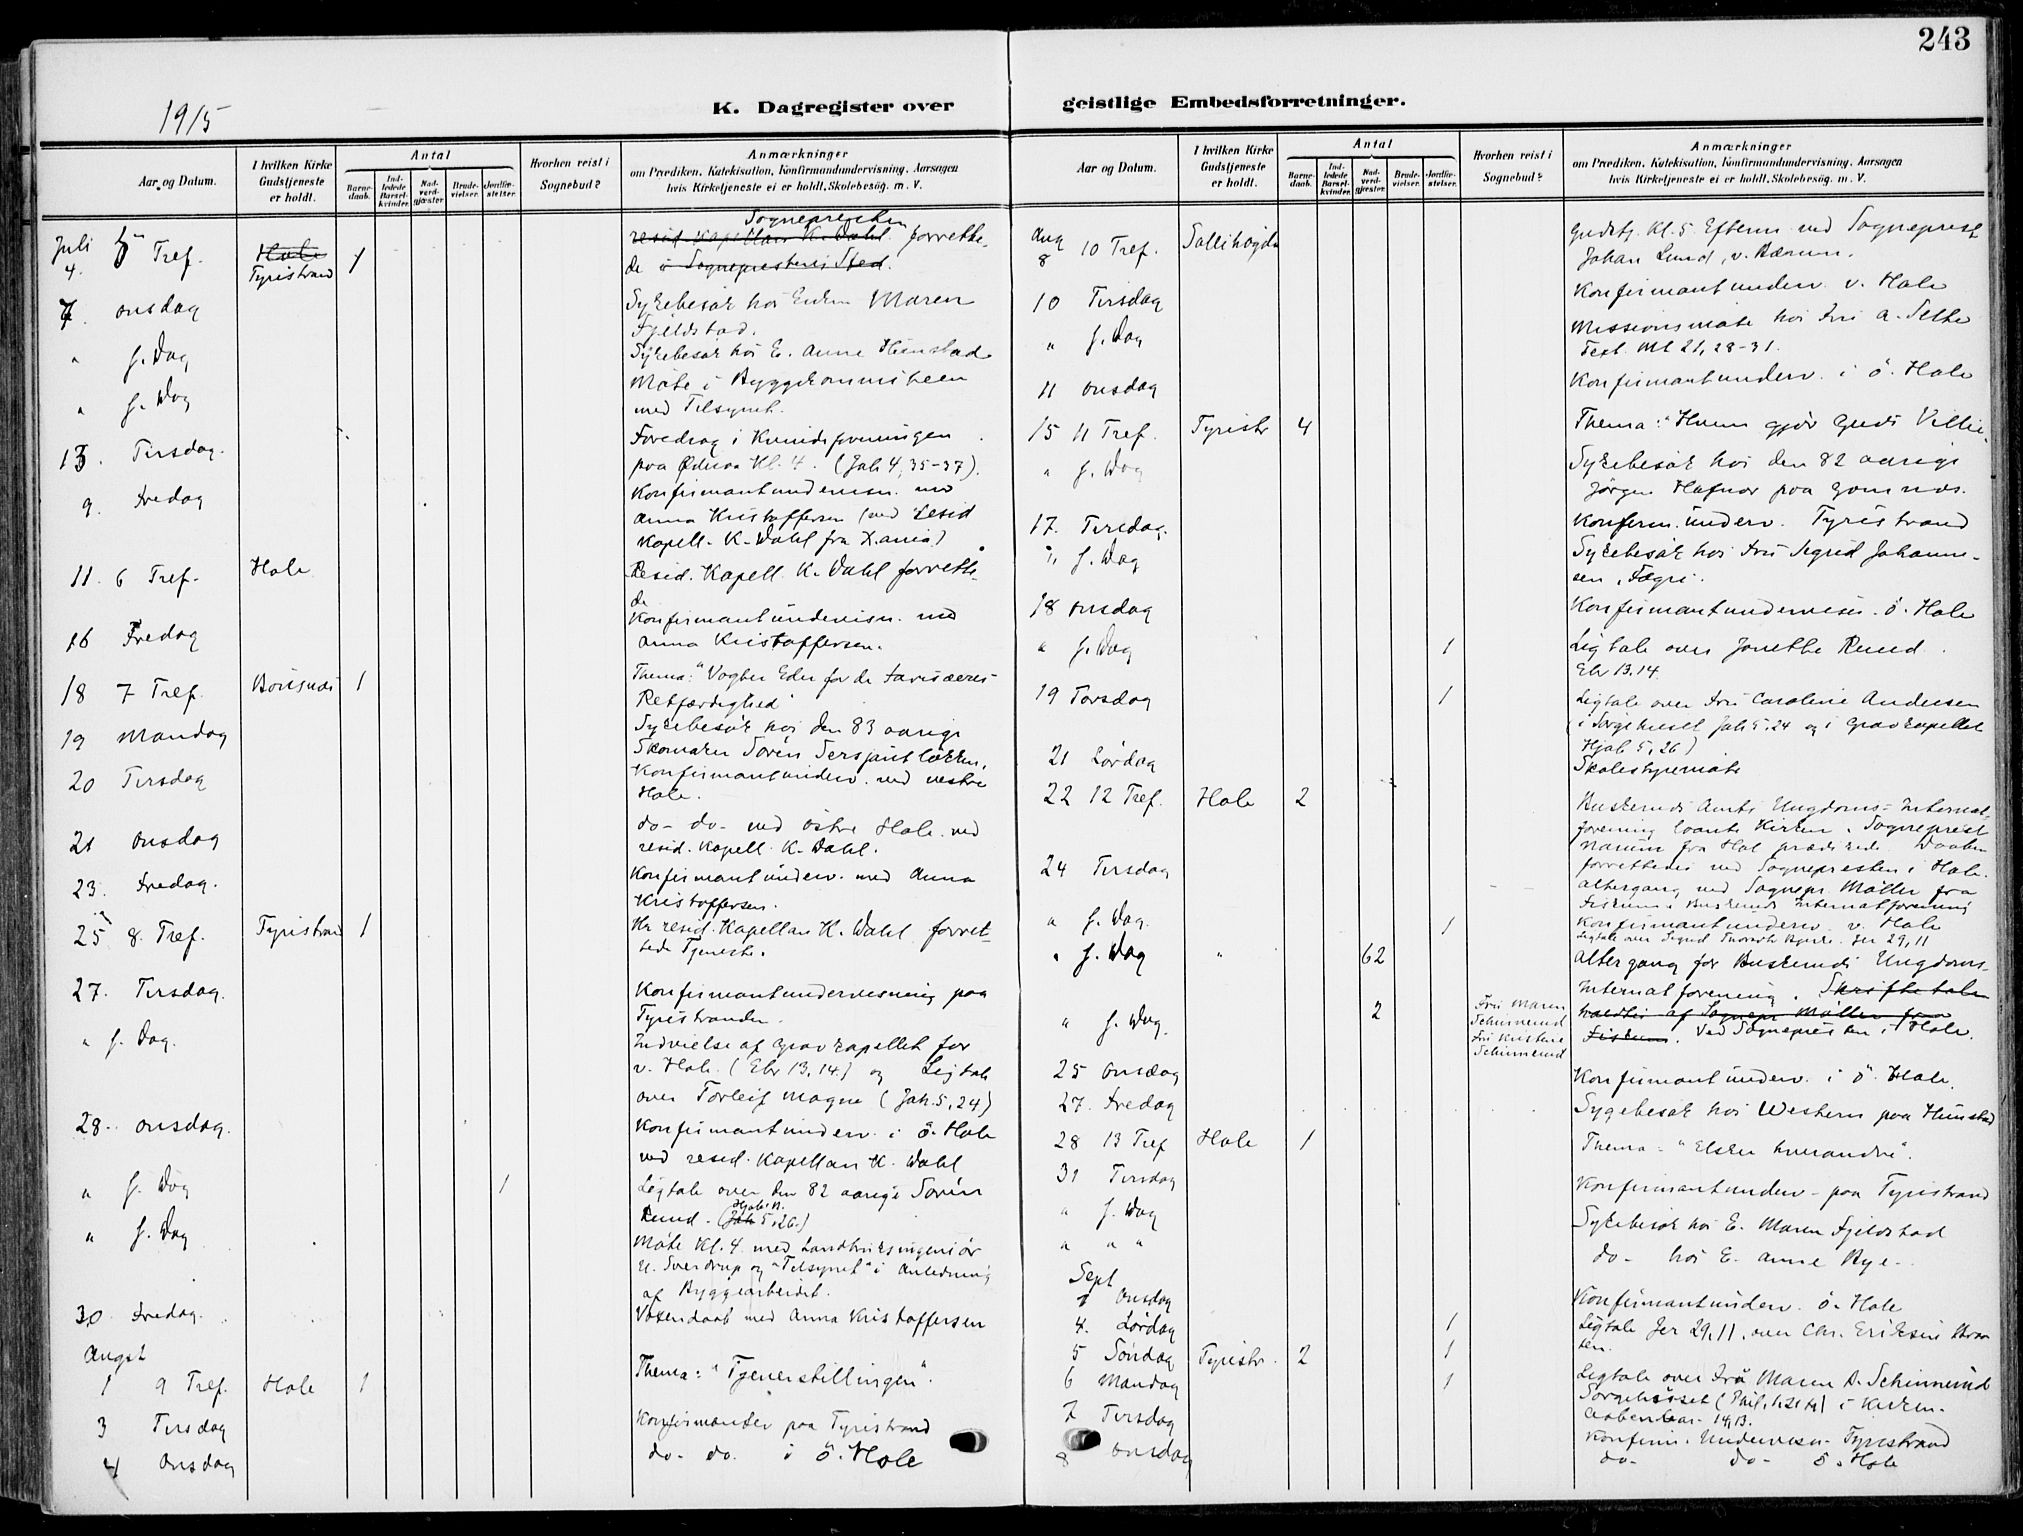 243
1915
K. Dagregister over geistlige Embedsforretninger.
Aar og Datum.
I hvilken Kirke Gudstjeneste er holdt.
Antal
Barnedaab.
Indledede Barselkvinder.
Nadverdgjæster.
Brudevielser.
Jordfæstelser.
Hvorhen reist i Sognebud?
Anmærkninger
om Prædiken, Katekisation, Konfirmandundervisning, Aarsagen
hvis Kirketjeneste ei er holdt, Skolebesøg. m. V.
Juli
4. 5 Tref. Hole Tyristrand 1 Sognepresten
resid. Kapellan K. Dahl forrette-
de i Sogneprestens Sted.
7. onsdag Sykebesøk hos Enken Maren
Fjeldstad.
" s. Dag Sykebesøk hos E. Anne Hunstad
" s. Dag Møte i Byggekommisteen
med Tilsynet.
13. Tirsdag. Foredrag i Kvindeforeningen
paa Kl. 4. (Joh 4, 35-37).
9. Fredag Konfirmantundervisn. med
Anna Kristoffersen (ved Resid
Kapell. K. Dahl fra X.ania)
11. 6 Tref. Hole Resid. Kapell. K. Dahl forrette-
de
16 Fredag Konfirmantundervisn. med
Anna Kristoffersen.
18 7 Tref. Bønsnes 1 Thema: "Vogter Eder for de farisæeres
Retfærdighed"
19 Mandag Sykebesøk hos den 83 aarige
Skomaker Søren Sersjantløkken.
20 Tirsdag Konfirmantunderv. ved vestre
Hole.
21 onsdag do- do- ved østre Hole ved
resid. Kapell. K. Dahl.
23. Fredag. Konfirmantunderv. med Anna
Kristoffersen.
25 8. Tref. Tyristrand 1 Hr resid. Kapellan K. Dahl forret-
tede Tjeneste.
27. Tirsdag. Konfirmantundervisning paa
Tyristranden.
" s. Dag. Indvielse af Gravkapellet for
v. Hole. (Ebr 13,14.) og Ligtale
over Torleif Magne (Joh. 5, 24)
28. onsdag. Konfirmantunderv. i ø. Hole
ved resid. Kapellan K. Dahl
" s. Dag 1 Ligtale over den 82 aarige Søren
Rund. (Joh Hjob. 5, 26.)
" s. Dag Møte Kl. 4 med Landbruksingeniør
U. Sverdrup og "Tilsynet" i Anledning
af Byggearbeidet.
30 Fredag. Voxendaab med Anna Kristoffersen
August
1 9 Tref. Hole 1 Thema: "Tjenerstillingen".
3 Tirsdag Konfirmanter paa Tyristrand
4 Onsdag do- do. i ø. Hole
Aar og Datum.
I hvilken Kirke Gudstjeneste er holdt.
Antal
Barnedaab.
Indledede Barselkvinder.
Nadverdgjæster.
Brudevielser.
Jordfæstelser.
Hvorhen reist i Sognebud?
Anmærkninger
om Prædiken, Katekisation, Konfirmandundervisning, Aarsagen
hvis Kirketjeneste ei er holdt, Skolebesøg. m. V.
Aug
8 10 Tref. Sollihøgda Gudstj. Kl. 5 Efterm. ved Sogneprest
Johan Lund, v. Bærum.
10 Tirsdag Konfirmantunderv. v. Hole
" s. Dag Missionsmøte hos Fru A. Sette
Text. Mt 21, 28-31.
11 onsdag Konfirmantunderv. i ø. Hole
15 11 Tref. Tyristr 4 Thema: "Hvem gjør Guds Villie.
" s. Dag Sykebesøk hos den 82 aarige
Jørgen Hafnor paa Gomnes.
17. Tirsdag. Konfirm. underv. Tyristrand
" s. Dag Sykebesøk hos Fru Sigrid Johanne-
sen, Fagri.
18 onsdag Konfirmantundervisn. ø. Hole
" s. Dag 1 Ligtale over Jonette Rund.
Ebr 13.14.
19 Torsdag 1 Ligtale over Fru Caroline Andersen
(i Sørgehuset Joh 5,24 og i Gravkapellet
Hjob 5,26)
21 Lørdag Skolestyremøte
22 12 Tref. Hole 2 Buskeruds Amts Ungdoms-Internat-
forening laante Kirken. Sogneprest
fra Hol prædikede. Daaben
forrettedes ved Sognepresten i Hole.
Altergang ved Sognepr. Møller fra
Fiskum i Buskeruds Internatforening
24 Tirsdag Konfirmantunderv. v. Hole
" s. Dag. 1 Ligtale over Sigrid Bjerke. Jer 29,11
" s. Dag " 62 Altergang for Buskeruds Ungdoms-
Internatforening. Skriftetalen
holdtes af Sognepr Møller fra
Fiskum. Ved Sognepresten i Hole.
" s. Dag. 2 Fru Maren
Schinnerud
Fru Kristine
Schinnerud
25 onsdag Konfirmantunderv. i ø. Hole.
27. Fredag Sygebesøk hos Western paa Hunstad
28 13 Tref Hole 1 Thema: "Elsker hverandre".
31 Tirsdag Konfirmantunderv- paa Tyristrand
" s. Dag Sykebesøk hos E. Maren Fjeldstad
" " " do- hos E. Anne Bye.-
Sept
1 onsdag Konfirmantunderv. ø. Hole
4. Lørdag 1 Ligtale Jer 29,11. over Chr. Eriksen
5 Søndag Tyristr. 2 1
6 Mandag 1 Ligtale over Fru Maren A. Schinnerud
Sørgehuset (Phil. 1,21 ) i Kirken.
Aabenbar. 14,13.
7 Tirsdag Konfirm. Undervisn- Tyristrand
8 onsdag do- do- ø. Hole